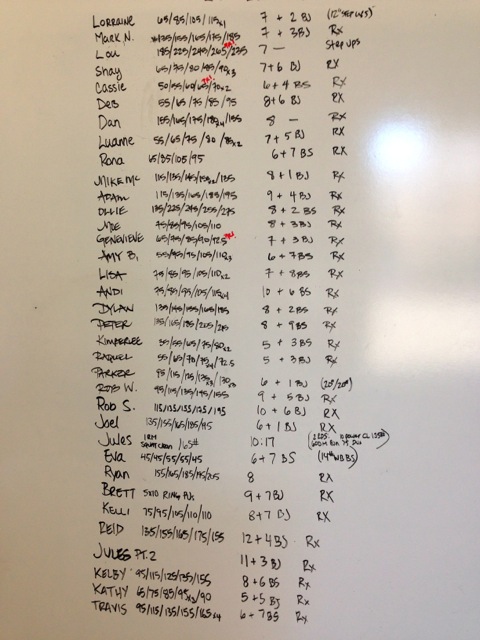 Lorraine 65/85/105/115x1 7 + 2 BJ (12" STEP UPS)
MARK N. 135/155/165/175/185 7 + 3BJ Rx
Lou 185/225/245/265/275 7 — STEP UPS
Shay 65/75/80/85/90x3 7+6 BJ RX
Cassie 50/55/60/65/70x2 6+4 BS RX
Deb 55/65/75/85/95 8+6 BJ RX
Dan 155/165/175/185 8 — RX
Luanne 55/65/75/80/85x2 7+5 BJ RX
Rona 65/85/105/95 6+7 BS RX
MIKE MC 115/135/145 8+1 BJ Rx
ADAM 115/135/165/185/195 9 + 4 BJ Rx
OLLIE 135/225/245/255/275 8 + 2 BS Rx
75/85/95/105/110 8 + 3BJ Rx
GENEVIEVE 65/75/85/90/92.5 7 + 3BJ Rx
AMY B. 55/85/95/105/110x3 6 + 7BS Rx
LISA 75/85/95/105/110x2 7 + 8BS Rx
ANDI 75/85/95/105/115x4 10 + 6 BS Rx
DYLAN 135/145/155/165/185 8 + 2BS Rx
PETER 135/165/185/205/215 8 + 9BS Rx
KIMBERLEE 55/65/75/80x2 5 + 3BS Rx
RAQUEL 55/65/70/75x4/72.5 5 + 3BJ Rx
PARKER 95/115/125/135x3/130x3
ROB W. 95/115/135/145/155 6 + 1 BJ (20"/20#)
Rob S. 115/135/155/175/195 9 + 5BJ Rx
Joel 135/155/165/185/195 10 + 6BJ RX
Jules 1RM 6+1 BJ RX
SQUAT CLEAN /165# 10:17
Eva 45/45/55/55/65 6+7 BS (14# WB BS)
Ryan 155/165/185/195/205 8 RX
BRETT 5x10 RING PUs 9+7BJ RX
KELLI 75/95/105/110/110 8+7 BJ RX
REID 135/155/165/175/155 12+4BJ Rx
JULES PT.2 11+3 BJ Rx
KELBY 95/115/125/135/155 8+6BS Rx
KATHY 65/75/85/95x3/90 5+5 BJ Rx
TRAVIS 95/115/135/155/165x4 6+7BS Rx